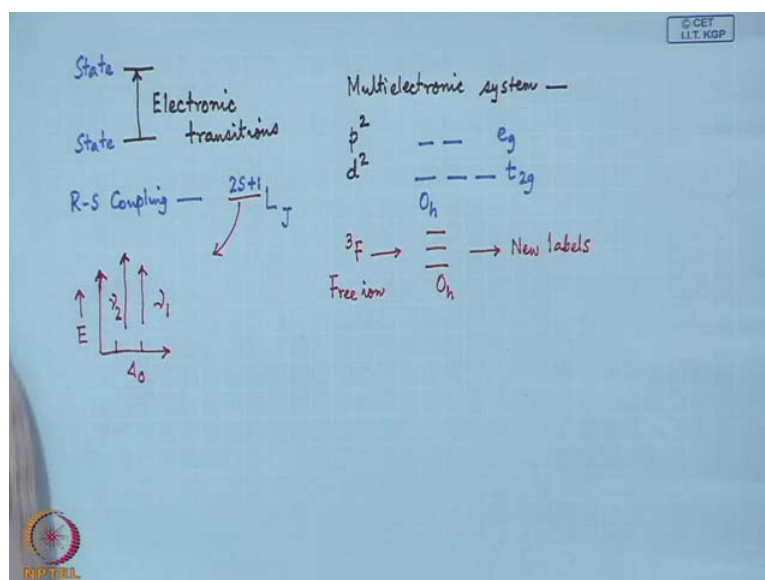 © CET
I.I.T. KGP
State
Electronic
transitions
State
R-S Coupling — 2S+1LJ
E
ν2
ν1
Δo
Multielectronic system —
p2
d2
eg
t2g
Oh
3F → → New labels
Free ion
Oh
NPTEL